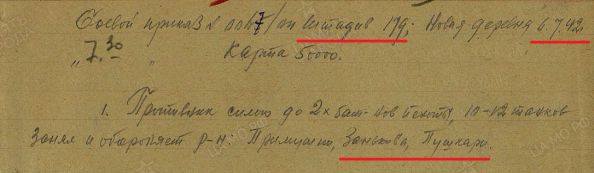 Боевой приказ № 007/оп штадив 17д; Новая деревня 6.7.42
"7.30" Карта 50000.
1. Противник силою до 2х бат-нов пехоты, 10-12 танков
занял и обороняет р-н: Примушино, Занькова, Пушкари.